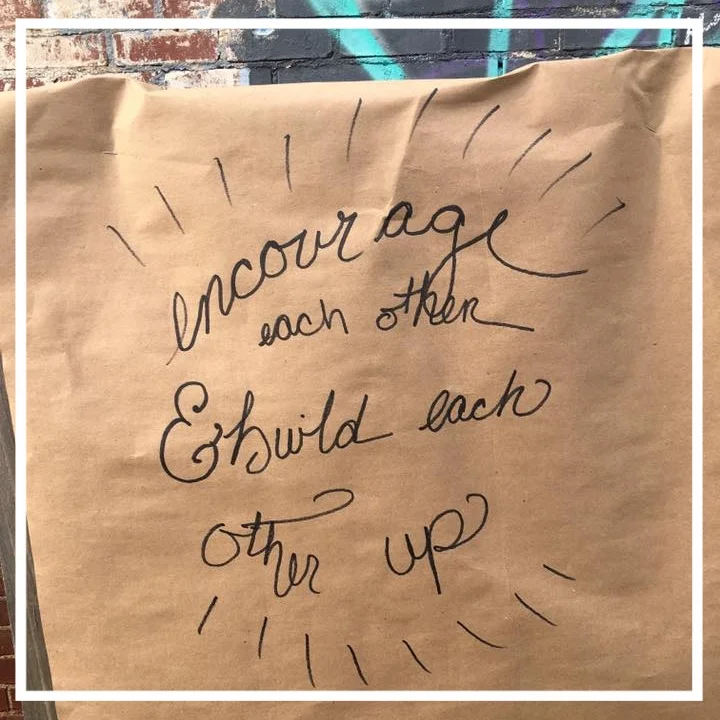 encourage
each other
& build each
other up